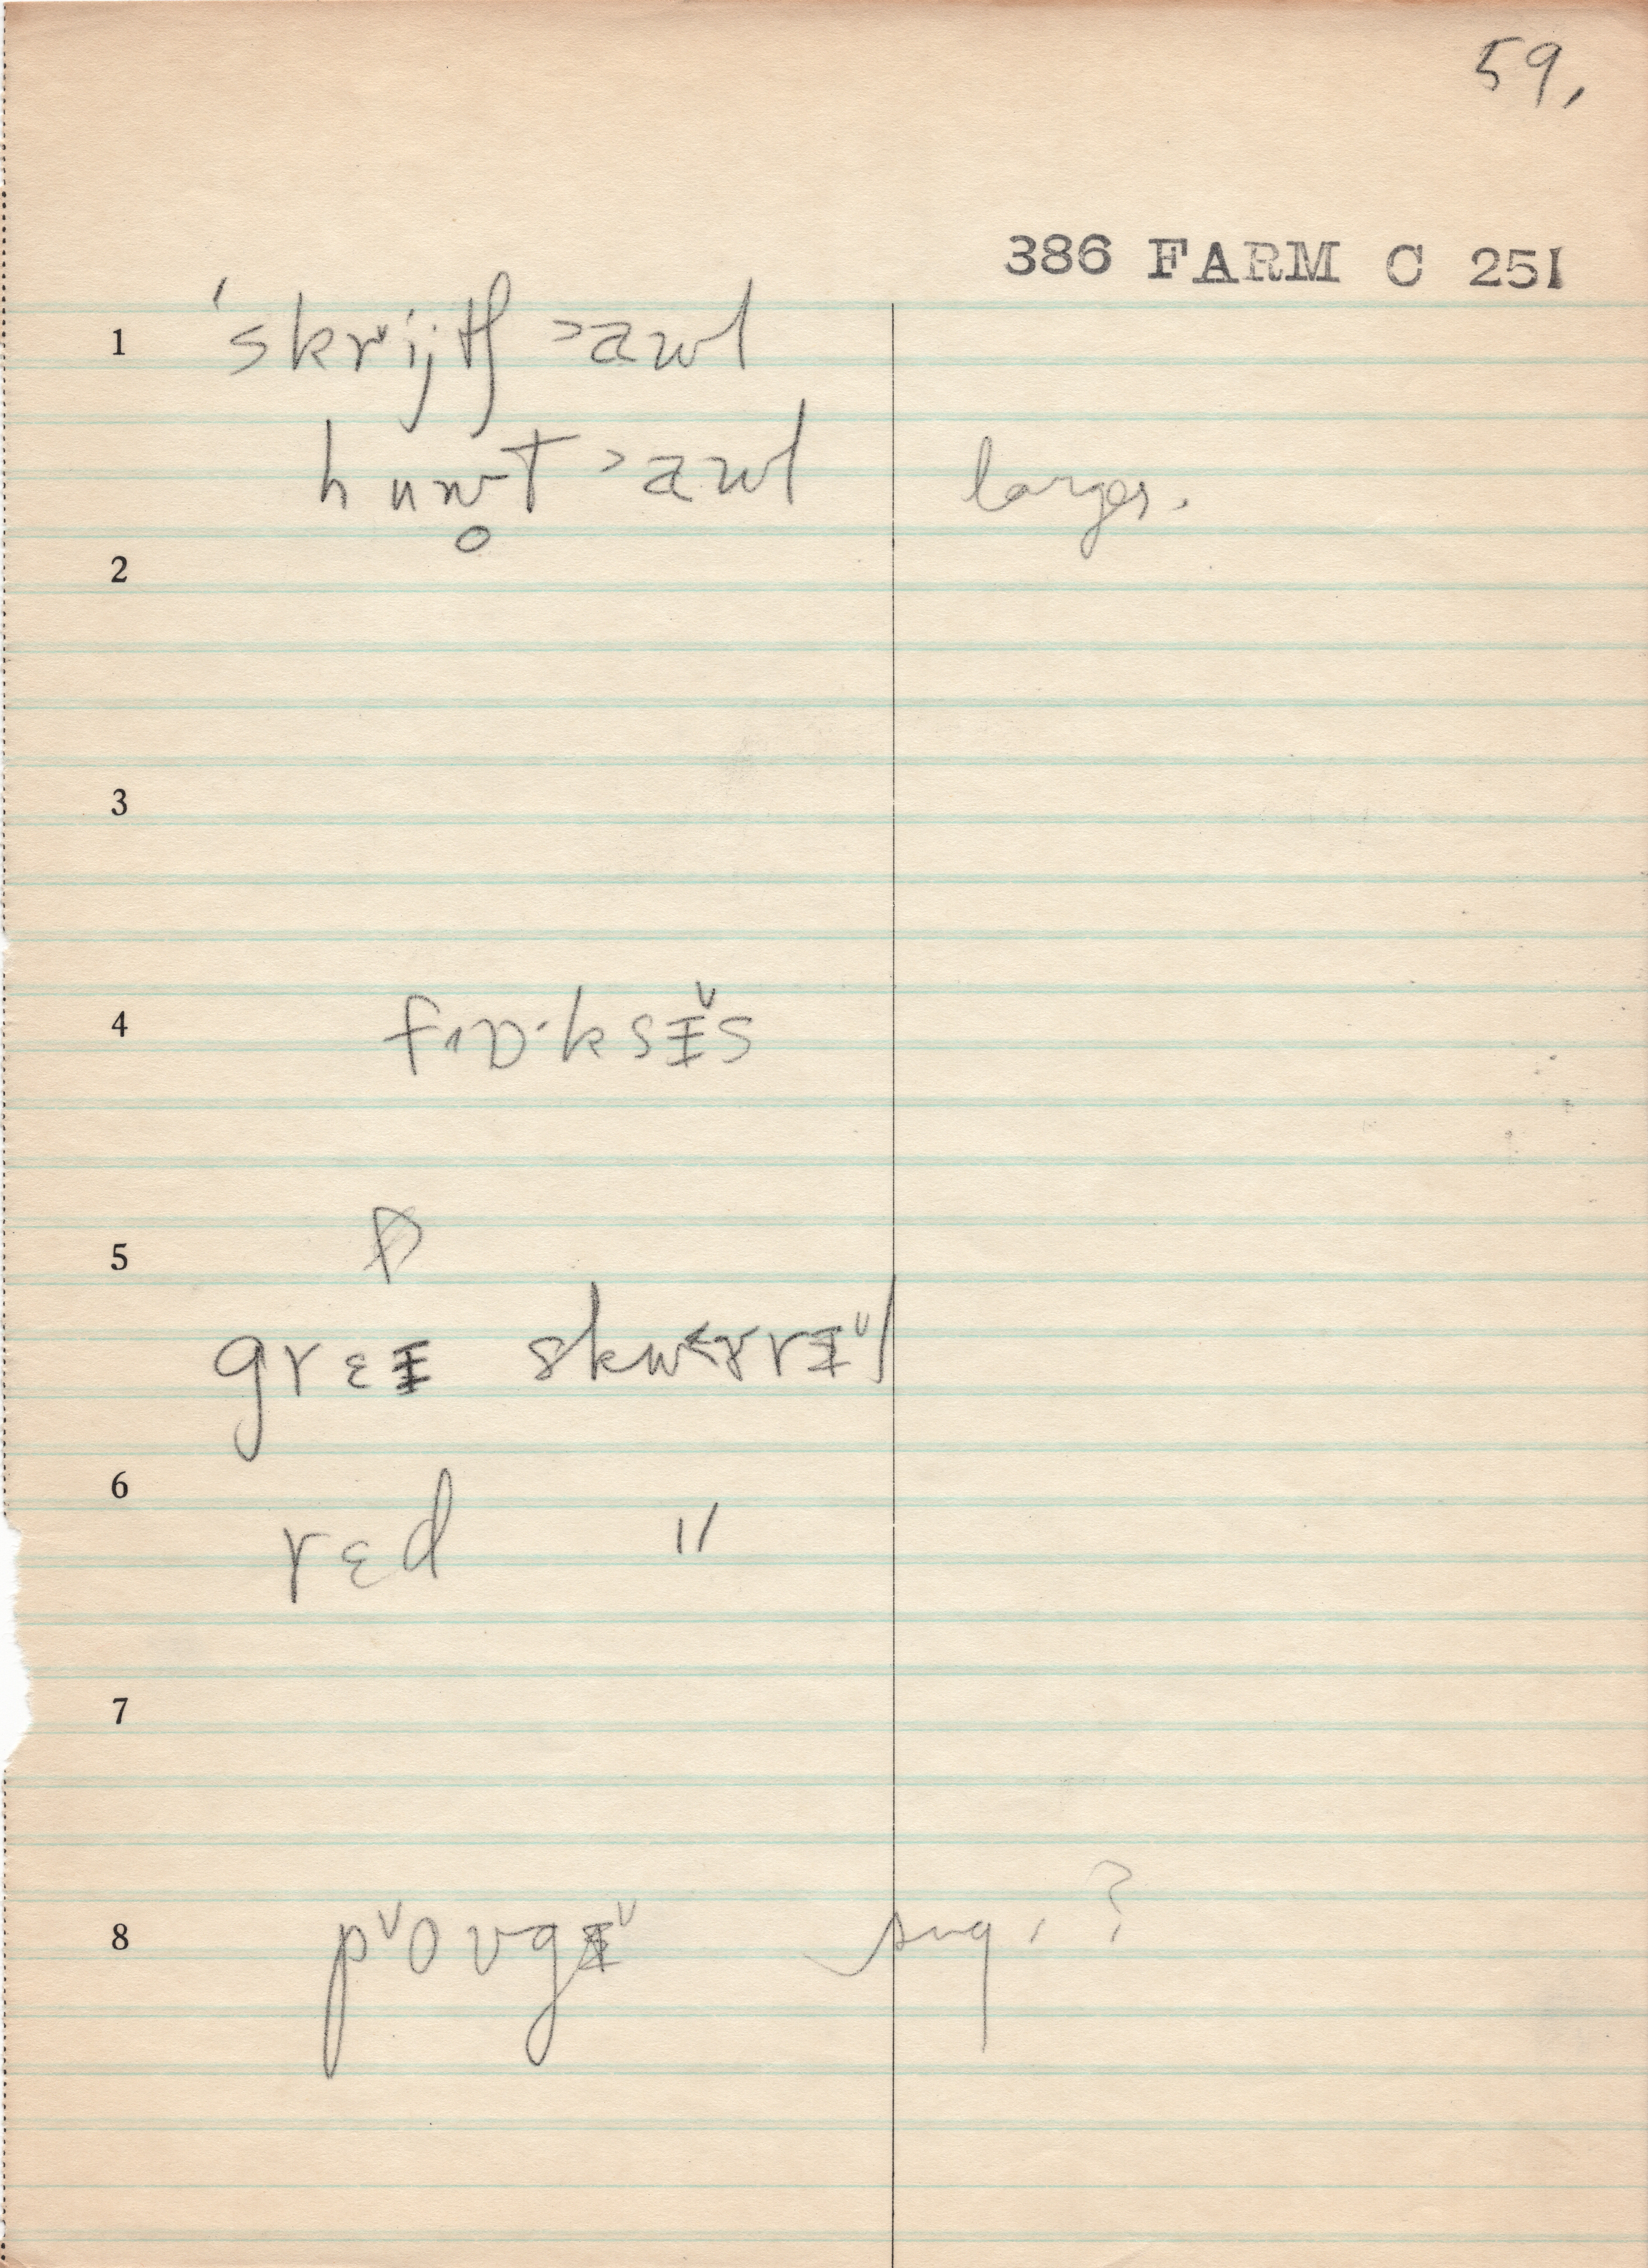 59,
386 FARM C 251
1 ˈskrᵛijtʃ >aʊl
huw̥t >aʊl larger.
2
3
4 fɒ·ksɪ̵̌s
5
grɛɪ̵ skw<ɤrɪ̵̌l
6
rɛd "
7
8 pᵛoʊgɪ̵̌ sug. ?